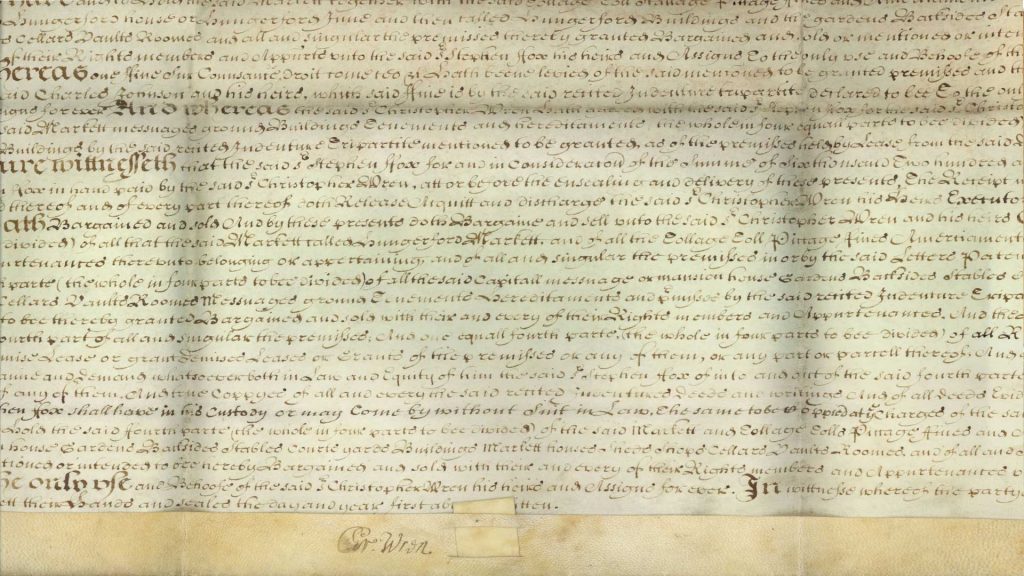 Hungerford house or Hungerford Inne and then called Hungerford Buildings and the gardens Backsides
Cellars Vaults Roomes and all and singular the premisses thereby granted Bargained and sold or mentioned or
of their Rights members and Appurts unto the said Sr Stephen Fox his heirs and Assigns To the only use and Behoofe of
Whereas one Fine Sur Conusance Droit come ceo &c Hath beene levied of the said mentioned to be granted premises and
Charles Johnson and his heirs, which said Fine is by the said recited Indenture tripartite declared to bee To the only
for ever And whereas the said Sr Christopher Wren hath with the said Sr Stephen Fox for the said Sr
said Markett messuages ground Buildings Tenements and hereditaments the whole in four equall parts to be divided
Buildings by the said recited Indenture Tripartite mentioned to be granted, as of the premises held by Lease from the said
wittnesseth that the said Sr Stephen Fox for and in Consideration of the Summe of Six thousand Two hundred
Fox in hand paid by the said Sr Christopher Wren, att or before the ensealing and delivery of these presents, The Receipt
thereof and of every part thereof doth Release Acquitt and discharge the said Sr Christopher Wren his Heirs Executors
Hath Bargained and sold And by these presents doth Bargaine and sell unto the said Sr Christopher Wren and his heirs
divided) of all that the said Markett called Hungerford Markett, and of all the Tollage Toll Pittage Fines Amerciaments
thereunto belonging or appertaining and of all and singular the premisses in or by the said Letters
parte (the whole in four parts to bee divided) of all the said Capitall message or mansion house Gardens Backsides Stables
Cellars Vaults Roomes Messages ground Tenements Hereditaments and pmisses by the said recited Indenture
to bee thereby granted Bargained and sold with their and every of their Rights members and Appurtenances. And the
fourth part of all and singular the premisses; And one equall fourth parte (the whole in four parts to bee divided) of all
Lease or grand demises Leases or Grants of the premisses or any of them, or any part or parcell thereof; And
and demand whatsoever both in Law and Equity of him the said Sr Stephen Fox of into and out of the said fourth parte
of any of them. And true Coppyes of all and every the said recited Indentures deeds and writings And of all deeds
Fox shall have in his Custody or may Come by without Suit in Law, The same to be Coppied at the Charges of the said
the said fourth parte (the whole in four parts to bee divided) of the said Markett and Tollage Tolls Pittage Fines and
house Gardens Backsides Stables Courtyards Buildings Markett houses Sheds Shops Cellars Vaults Roomes, and of all and
or intended to bee hereby Bargained and sold with their and every of their Rights members and Appurtenances
The only use and Behoofe of the said Sr Christopher Wren his heirs and Assigns for ever. In wittnesse whereof the partyes
sett their Hands and Seales the day and year first
Chr. Wren.